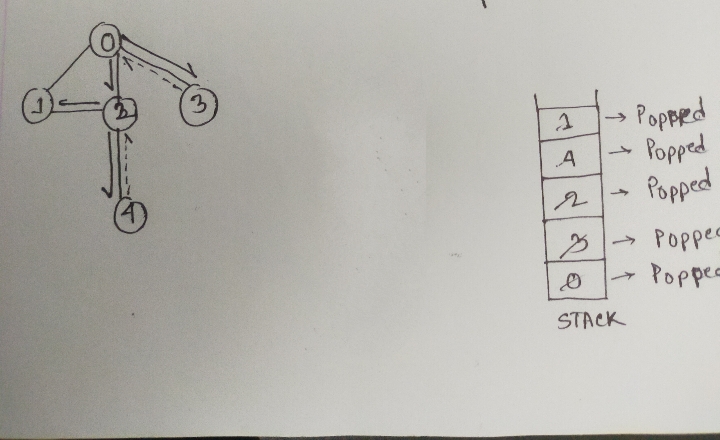 0
1
2
3
4
1 → Popped
4 → Popped
2 → Popped
3 → Poppe
0 → Poppe
STACK